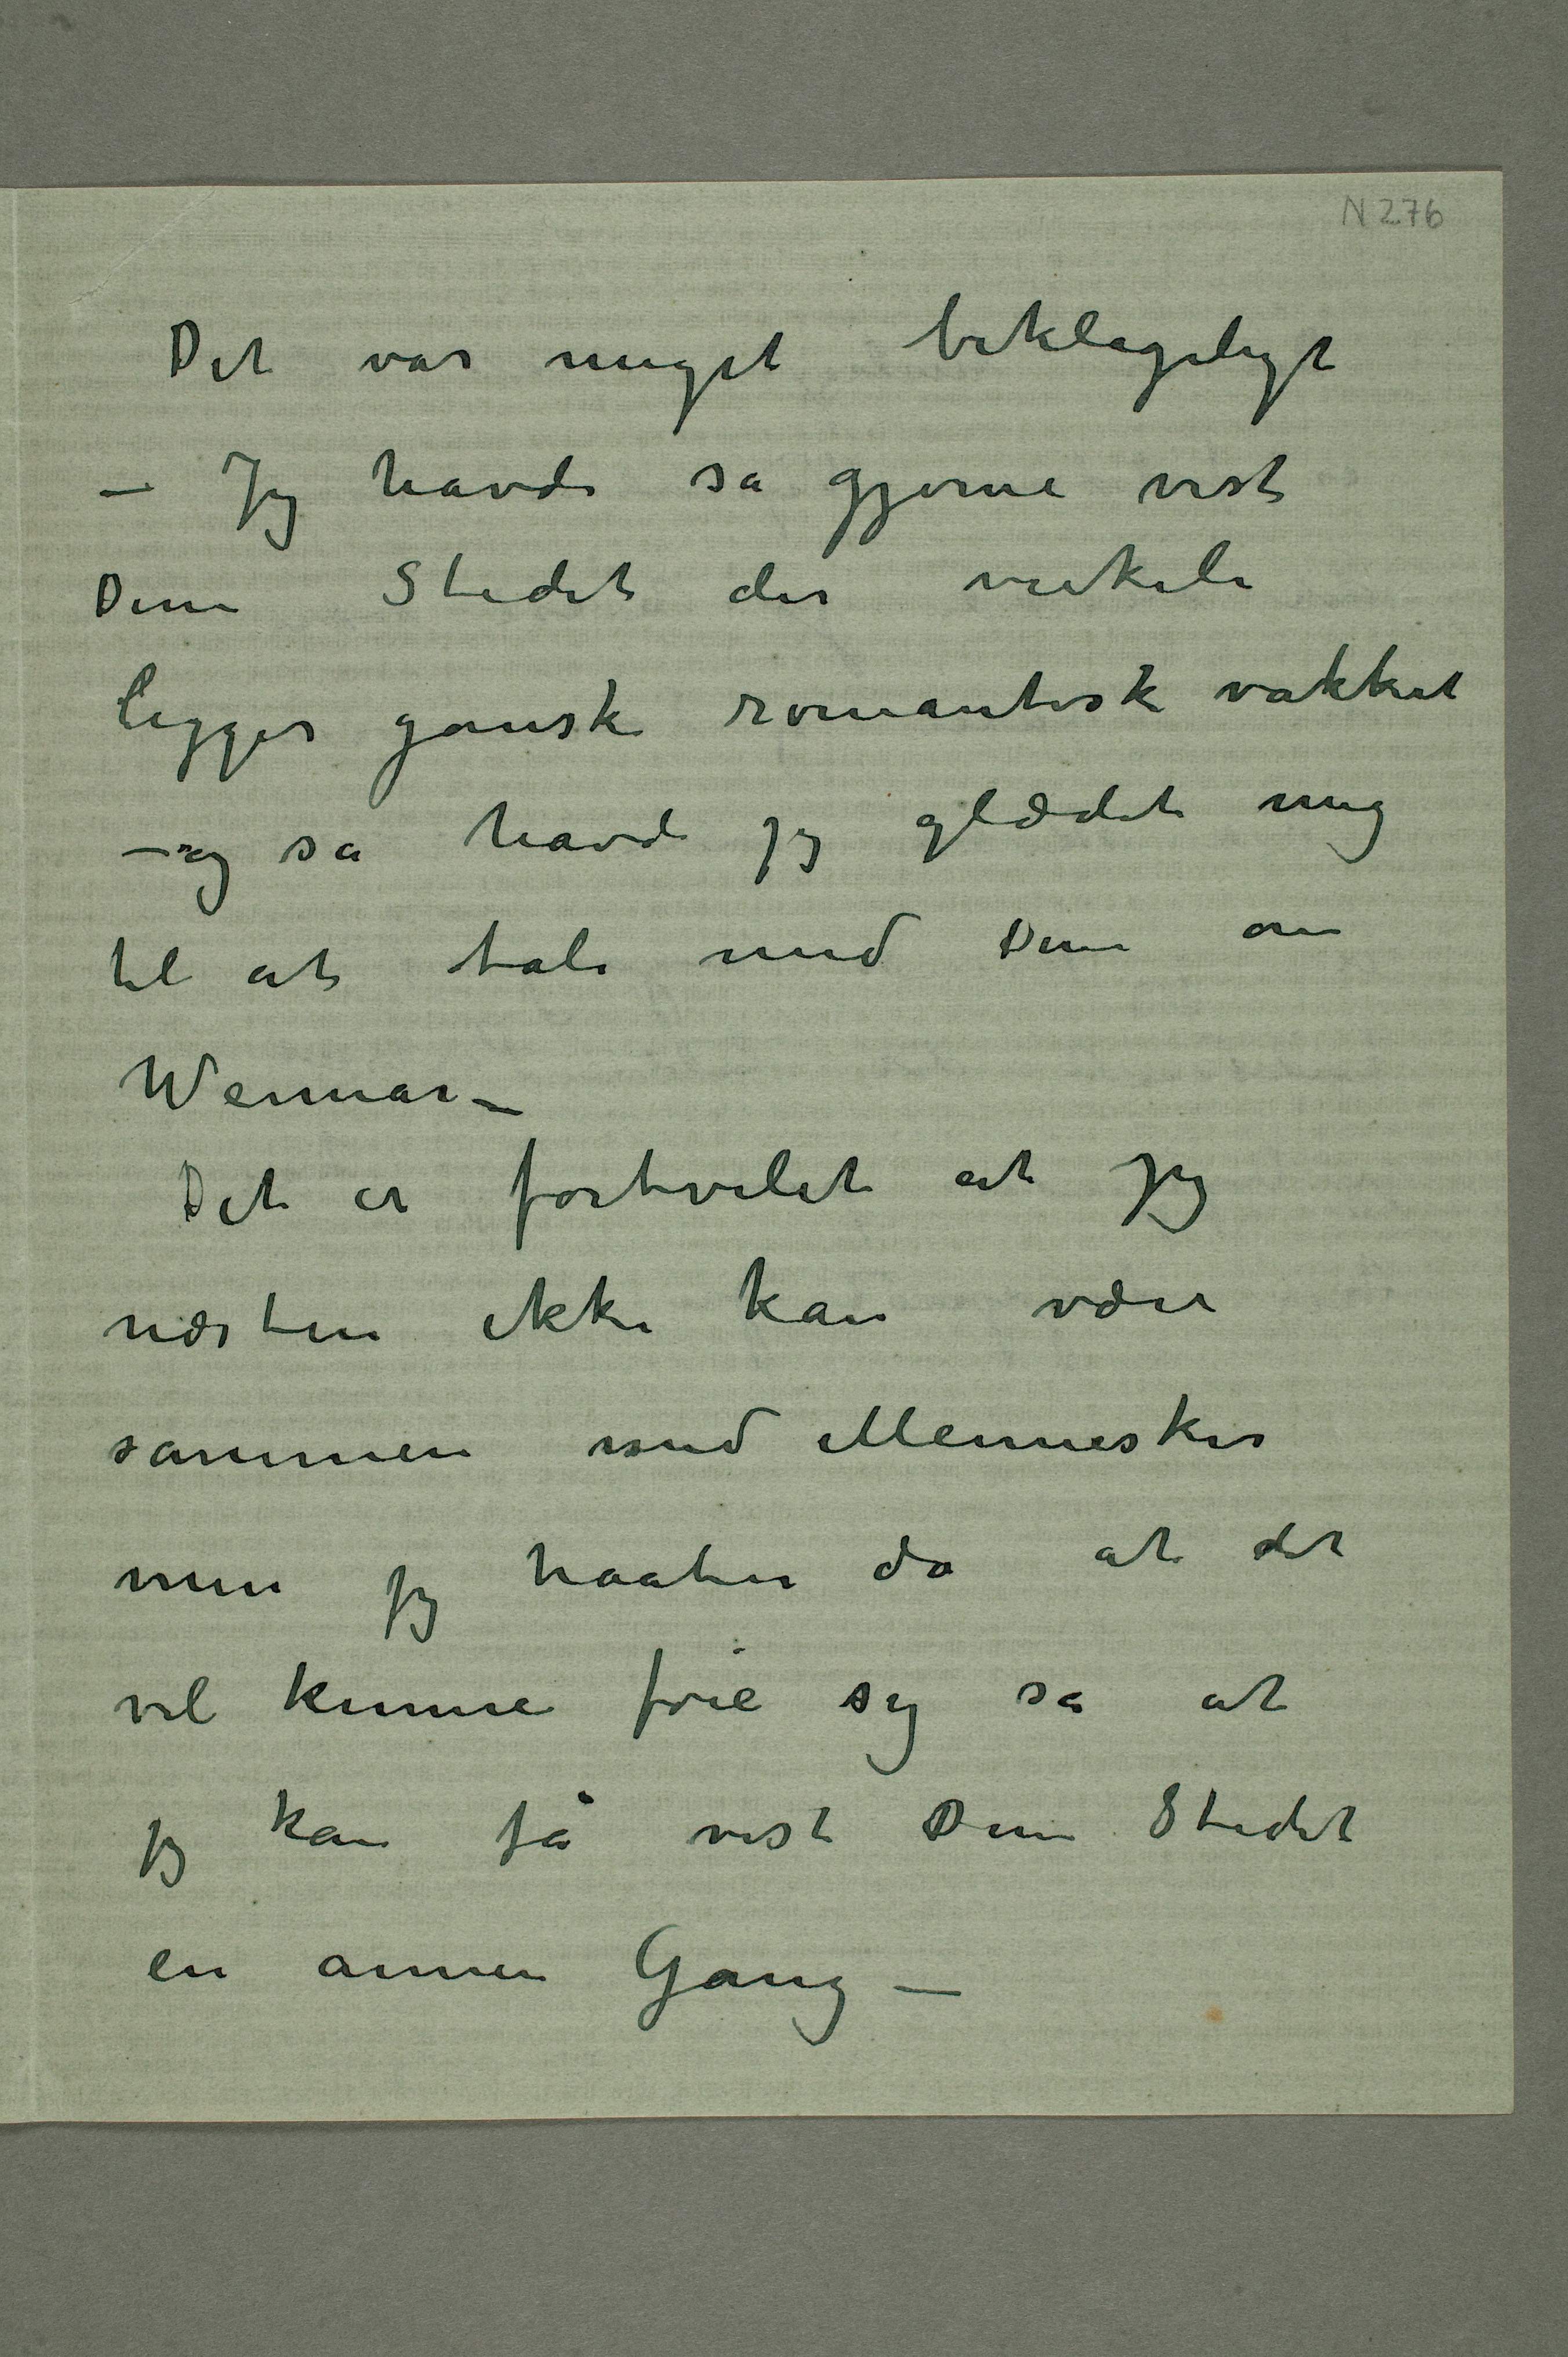 N 276
Det var meget beklageligt
– Jeg havde sa gjerne vist
Dem Stedet der virkeli
ligger ganske romantisk vakkert
– og sa havde jeg glædet mig
til at tale med Dem om
Weimar –
Det er fortvilet at jeg
næsten ikke kan være
sammen med Mennesker
men jeg haaber da at det
vil kunne føie sig sa at
jeg kan få vist Dem Stedet
en annen Gang –